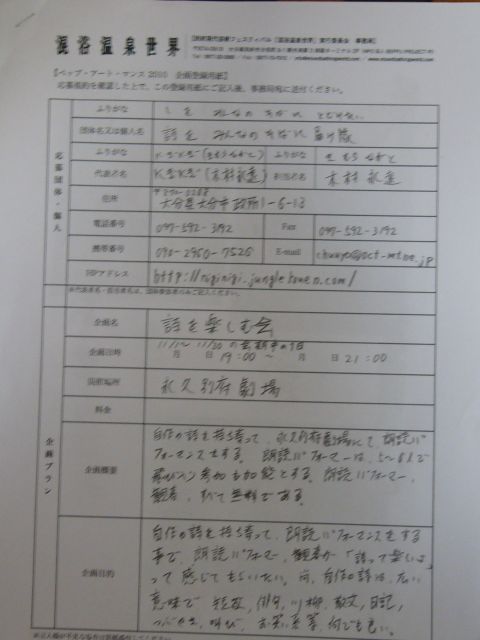 混浴温泉世界
【ベップ・アート・マンス 2010 企画登録用紙】
応募規約を確認した上で、この登録用紙にご記入後、事務局宛に送付ください。
応募団体・個人
ふりがな しを みんなの そばに とどけたい
団体名又は個人名 詩を みんなの そばに 届け隊
ふりがな ふりがな
代表者名 担当者名
住所
大分県大分市政所1-6-13
電話番号 097-592-3192 Fax 097-592-3192
携帯番号 090-2960-7525 E-mail
HPアドレス
※代表者名・担当者名は、団体登録者のみご記入ください。
企画プラン
企画名 詩を楽しむ会
企画日時 月 日 19:00 ~ 月 日 21:00
開催場所 永久別府劇場
料金
企画概要
自作の詩を持ち寄って、永久別府劇場にて朗読パ
フォーマンスをする。朗読パフォーマーは、5~8人で
飛び入り参加も可能とする。朗読パフォーマー、
観客、すべて無料である。
企画目的
自作の詩を持ち寄って、朗読パフォーマンスをする
事で、朗読パフォーマー、観客が「詩って楽しいよ
って感じてもらいたい。尚、自作の詩は、広い
意味で 短歌、俳句、川柳、散文、日記、
つぶやき、叫び、お笑い 何でも良い。